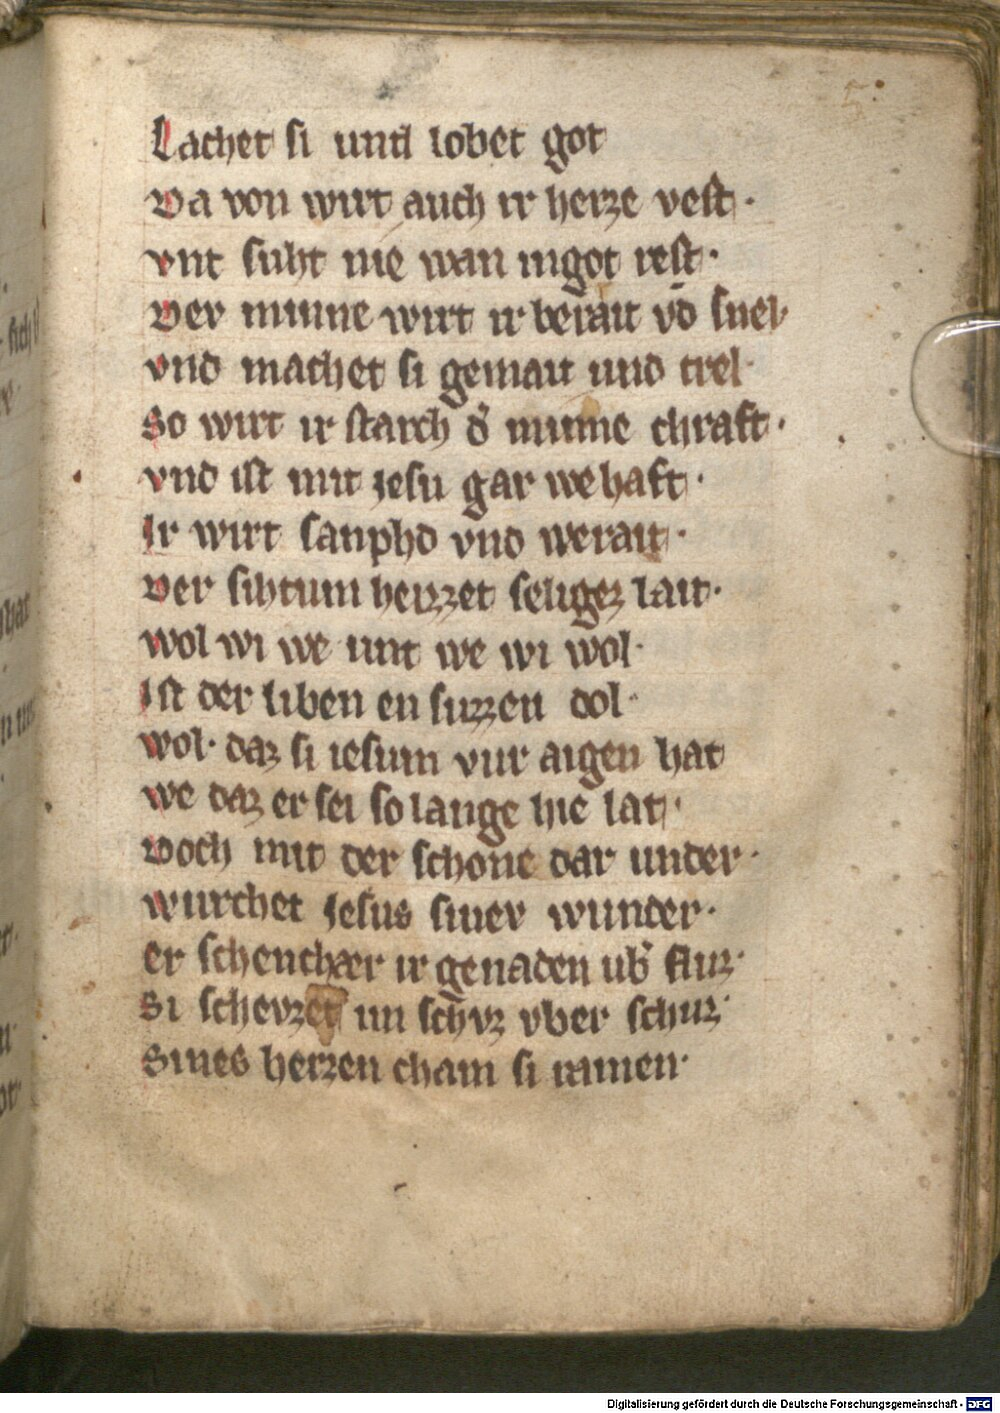 5
Lachet si und lobet got
Da von wirt auch ir herze vest ·
vnt siht nie wan ingot rest ·
Der minne wirt ir berait vn̄d snel ·
vnd machet si gemait und trel ·
So wirt ir starch d̕ minne chraft ·
vnd ist mit jesu gar wehaft ·
Ir wirt sanphd vnd werait ·
Der sihtum heizzet seligez lait ·
Wol wi we unt we wi wol ·
Ist der liben en suzzen dol ·
Wol · daz si iesum vur aigen hat
We daz er sei so lange hie lat ·
Doch mit der schone dar under ·
wurchet Jesus siner wunder ·
er schenchær ir genaden ub̕ fluz ·
Si schevzet im schvz vber schuz ·
Sines herzen cham si ramen ·
Digitalisierung gefördert durch die Deutsche Forschungsgemeinschaft - DFG